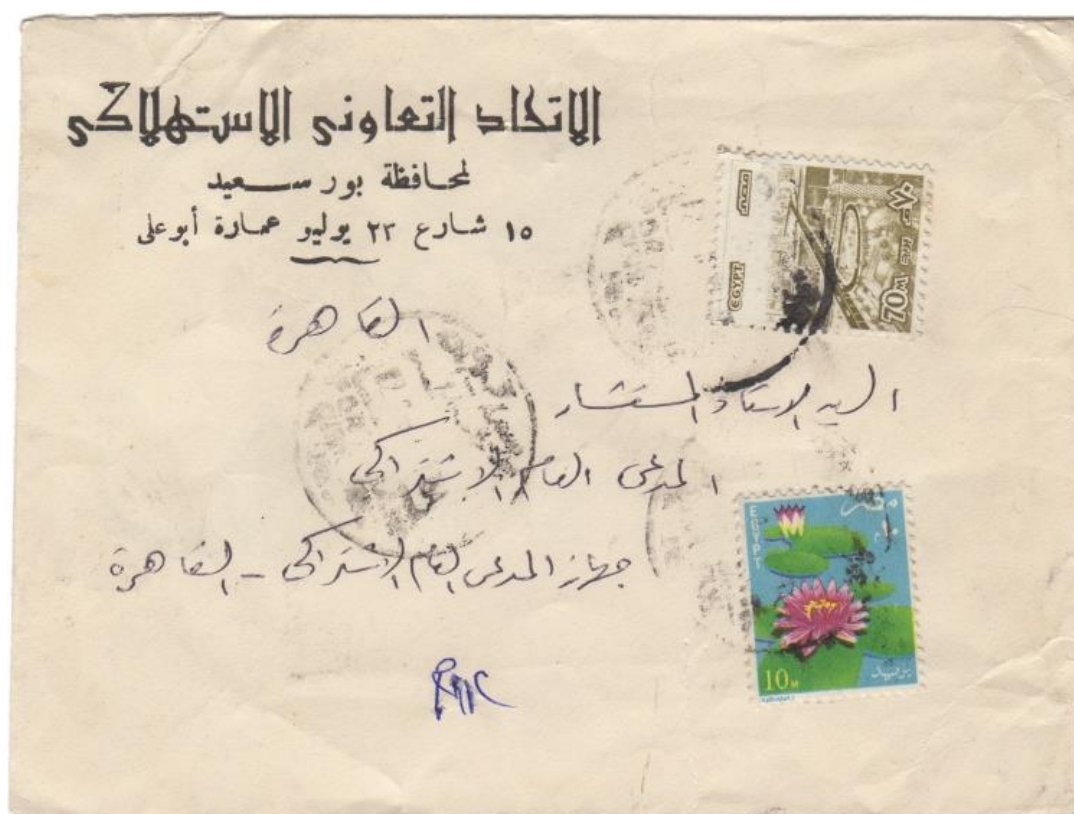 الاتحاد التعاونى الاستهلاكى
لمحافظة بور سعيد
١٥ شارع ٢٣ يوليو عمارة أبو على
القاهرة
السيد الاستاذ المستشار
المدعى العام الاشتراكى
جهاز المدعى العام الاشتراكى - القاهرة
مصر
٧٠ م
بريد
EGYPT
70M
مصر
EGYPT
10M
بريد